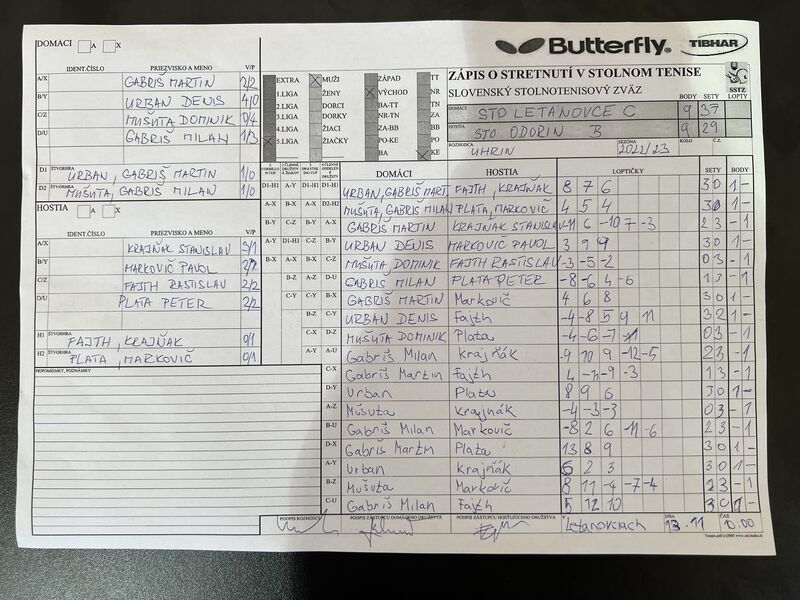 Butterfly
TIBHAR
DOMÁCI A X
IDENT.ČÍSLO PRIEZVISKO A MENO V/P
A/X GABRIŠ MARTIN 2/2
B/Y URBAN DENIS 4/0
C/Z MUŠUTA DOMINIK 0/4
D/U GABRIŠ MILAN 1/3
D1 ŠTVORHRA URBAN, GABRIŠ MARTIN 1/0
D2 ŠTVORHRA MUŠUTA, GABRIŠ MILAN 1/0
HOSTIA A X
IDENT.ČÍSLO PRIEZVISKO A MENO V/P
A/X KRAJŇAK STANISLAV 3/1
B/Y MARKOVIČ PAVOL 2/2
C/Z FAJTH RASTISLAV 2/2
D/U PLATA PETER 2/2
H1 ŠTVORHRA FAJTH, KRAJŇAK 0/1
H2 ŠTVORHRA PLATA, MARKOVIČ 0/1
PRIPOMIENKY, POZNÁMKY
EXTRA MUŽI ZÁPAD TT
1.LIGA ŽENY VÝCHOD NR
2.LIGA DORCI BA-TT TN
3.LIGA DORKY NR-TN ZA
4.LIGA ŽIACI ZA-BB BB
5.LIGA ŽIAČKY PO-KE PO
BA KE
ZÁPIS O STRETNUTÍ V STOLNOM TENISE
SLOVENSKÝ STOLNOTENISOVÝ ZVÄZ
SSTZ
BODY SETY LOPTY
DOMÁCI STO LETANOVCE C 9 37
HOSTIA STO ODORIN B 9 29
ROZHODCA UHRIN SEZÓNA 2022/23 KOLO Č.
DOMÁCI HOSTIA LOPTIČKY SETY BODY
D1-H1 A-Y D1-H1 D1-H1 URBAN, GABRIŠ MART FAJTH, KRAJŇAK 8 7 6 3 0 1 -
A-X B-X A-X D2-H2 MUŠUTA, GABRIŠ MILAN PLATA, MARKOVIČ 4 5 4 3 0 1 -
B-Y C-Z B-Y A-X GABRIŠ MARTIN KRAJŇAK STANISLAV 2 3 - 1
A-Y D1-H1 C-Z B-Y URBAN DENIS MARKOVIČ PAVOL 3 9 9 3 0 1 -
B-X A-X D-U C-Z MUŠUTA, DOMINIK FAJTH RASTISLAV -3 -5 -2 0 3 - 1
B-Z A-Z D-U GABRIŠ MILAN PLATA PETER -8 -6 4 -6 1 3 - 1
C-Y B-X GABRIŠ MARTIN Markovič 4 6 8 3 0 1 -
B-Z C-Y URBAN DENIS Fajth -4 -8 5 9 11 3 2 1 -
C-X D-Z MUŠUTA DOMINIK Plata -4 -6 -7 0 3 - 1
A-Y A-U Gabriš Milan Krajňák 9 10 9 -12 -5 2 3 - 1
C-X Gabriš Martin Fajth 1 3 - 1
D-Y Urban Plata 8 9 6 3 0 1 -
A-Z Mušuta Krajňák -4 -3 -3 0 3 - 1
B-U Gabriš Milan Markovič -8 2 6 -11 -6 2 3 - 1
D-X Gabriš Martin Plata 13 8 9 3 0 1 -
A-Y Urban Krajňák 6 2 3 3 0 1 -
B-Z Mušuta Markovič 8 11 -4 -7 -4 2 3 - 1
C-U Gabriš Milan Fajth 5 12 10 3 0 1 -
PODPIS ROZHODCU PODPIS ZÁSTUPCU DOMÁCEHO DRUŽSTVA PODPIS ZÁSTUPCU HOSŤUJÚCEHO DRUŽSTVA V Letanovciach DŇA 13.11 ČAS 10:00